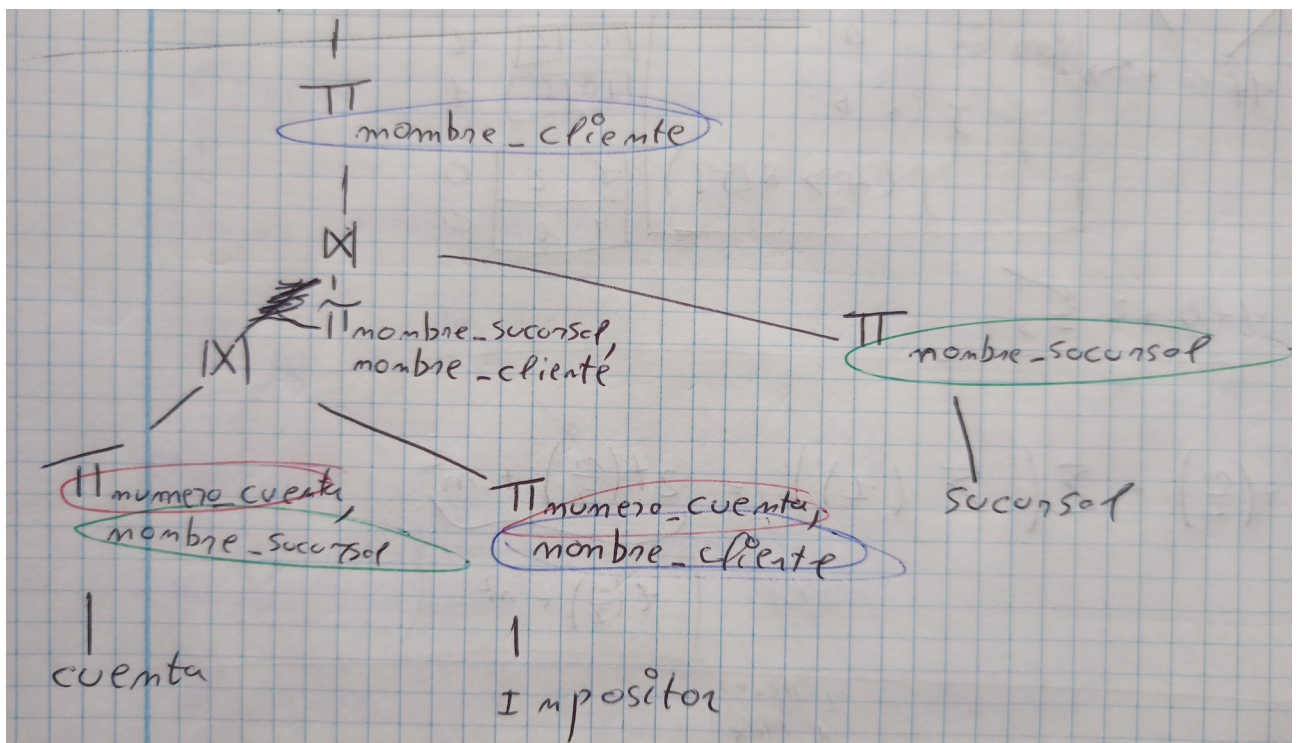 Π
nombre_cliente
|X|
Π nombre_sucursal,
nombre_cliente
|X|
Π
nombre_sucursal
Π numero_cuenta,
nombre_sucursal
Π numero_cuenta,
nombre_cliente
sucursal
cuenta
Impositor